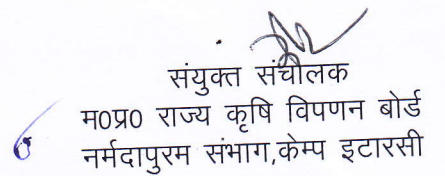 संयुक्त संचालक
म0प्र0 राज्य कृषि विपणन बोर्ड
नर्मदापुरम संभाग,केम्प इटारसी